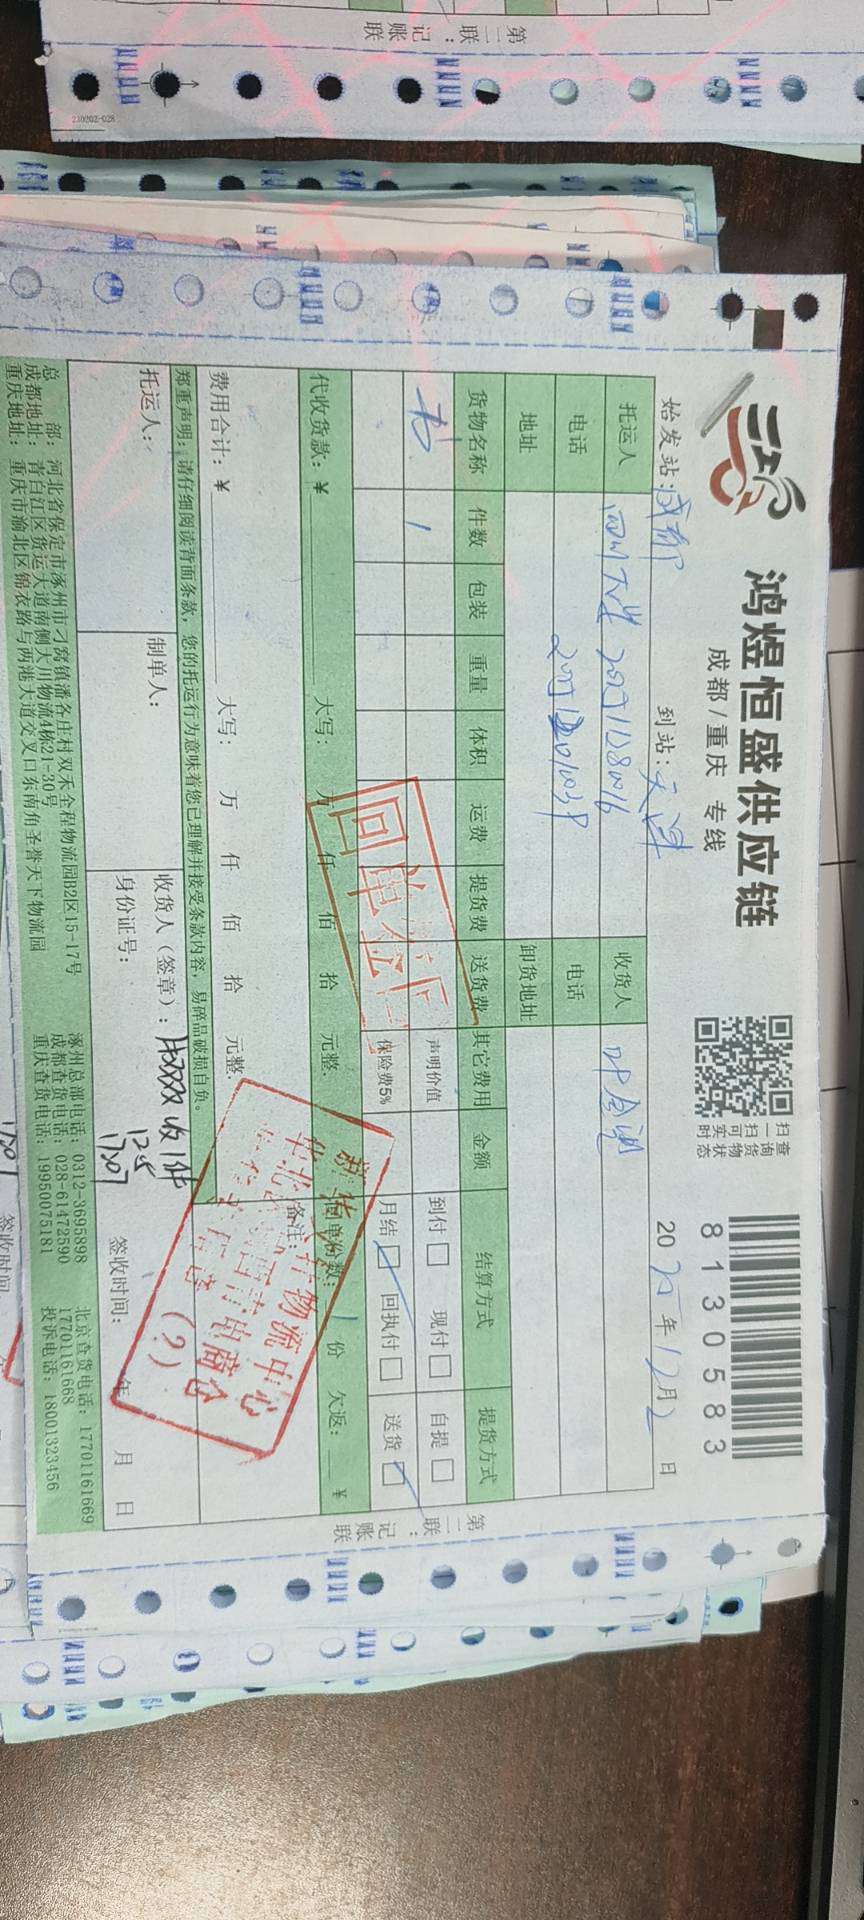 鸿煜恒盛供应链
成都/重庆 专线
扫一扫查询货物可实时状态
8130583
始发站:成都
到站:天津
2025年12月2日
托运人
收货人
电话
电话
地址
卸货地址
货物名称 件数 包装 重量 体积 运费 提货费 送货费 其它费用 金额 结算方式 提货方式
书 1
声明价值
到付 现付 自提
保险费5%
月结 回执付 送货
代收货款:¥ 大写: 万 仟 佰 拾 元整.
回单份数: 1 份 欠返: ¥
费用合计:¥ 大写: 万 仟 佰 拾 元整.
备注:
郑重声明:请仔细阅读背面条款,您的托运行为意味着您已理解并接受条款内容,易碎品破损自负。
托运人:
制单人:
收货人(签章):
收1件
12.5
身份证号:
签收时间: 年 月 日
总部:河北省保定市涿州市刁窝镇潘各庄村双禾全程物流园B2区15-17号
成都地址:青白江区货运大道南侧大川物流4栋21-30号
重庆地址:重庆市渝北区锦衣路与两港大道交叉口东南角圣誉天下物流园
涿州总部电话:0312-3695898
成都查货电话:028-61472590
重庆查货电话:19950075181
北京查货电话:17701161669
17701161668
投诉电话:18001323456
第二联:记账联
回单
物流中心
第二联:记账联
230202-028
签收时间